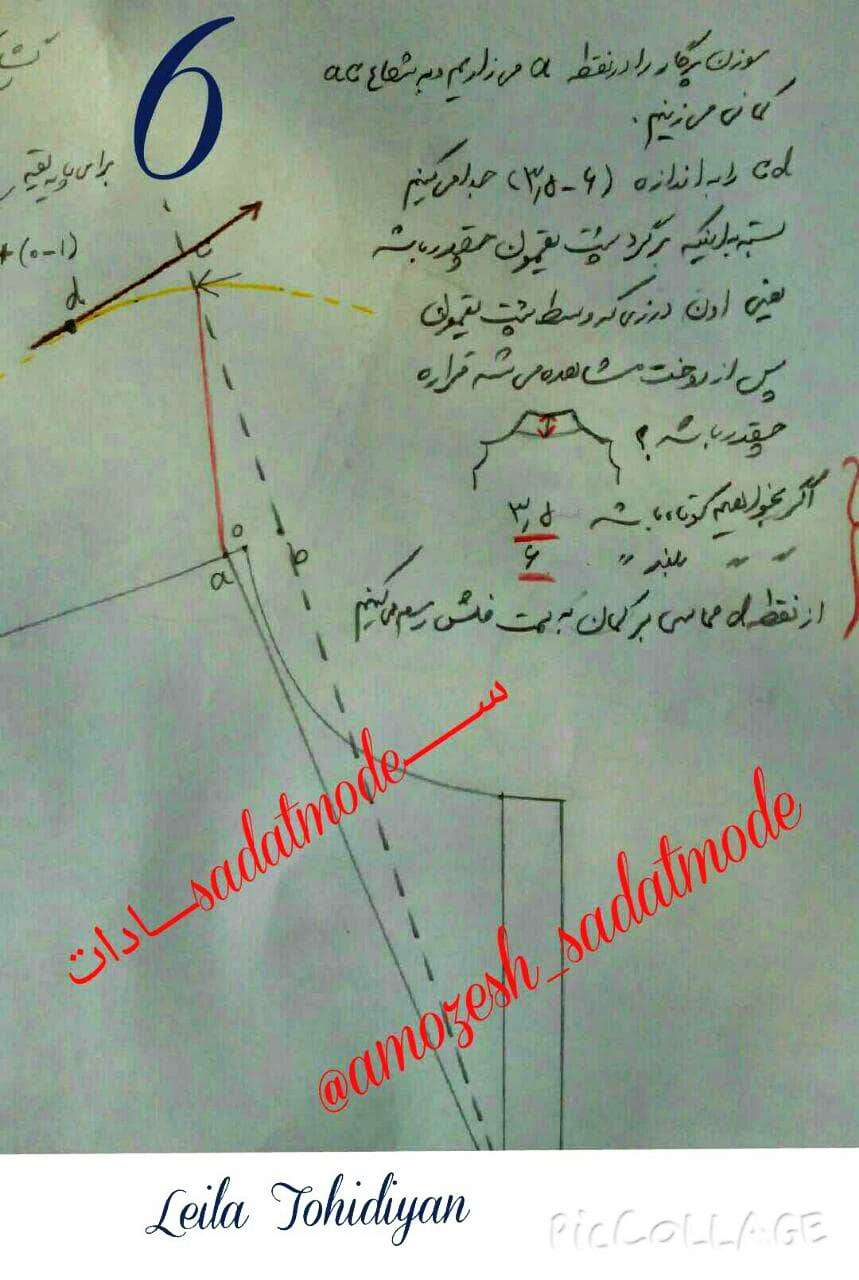 6
سوزن پرگار را در نقطه a می‌زاریم و به شعاع ac
کمانی می‌زنیم.
cd را به اندازه (۶-۳٫۵) جدا می‌کنیم
بسته به اینکه برگرد پشت یقمون چقدر باشه
یعنی اون درزی که وسط پشت یقمون
پس از دوخت مشاهده می‌شه قراره
چقدر باشه؟
اگر بخواهیم کوتاه باشه ۳٫۵
〃 〃 بلند 〃 ۶
از نقطه d مماسی بر کمان به سمت فلش رسم می‌کنیم
برای پایه یقیه
+ (0-1)
d
c
o
a
b
ســـادات sadatmode
@amozesh_sadatmode
Leila Tohidiyan
PicCollage